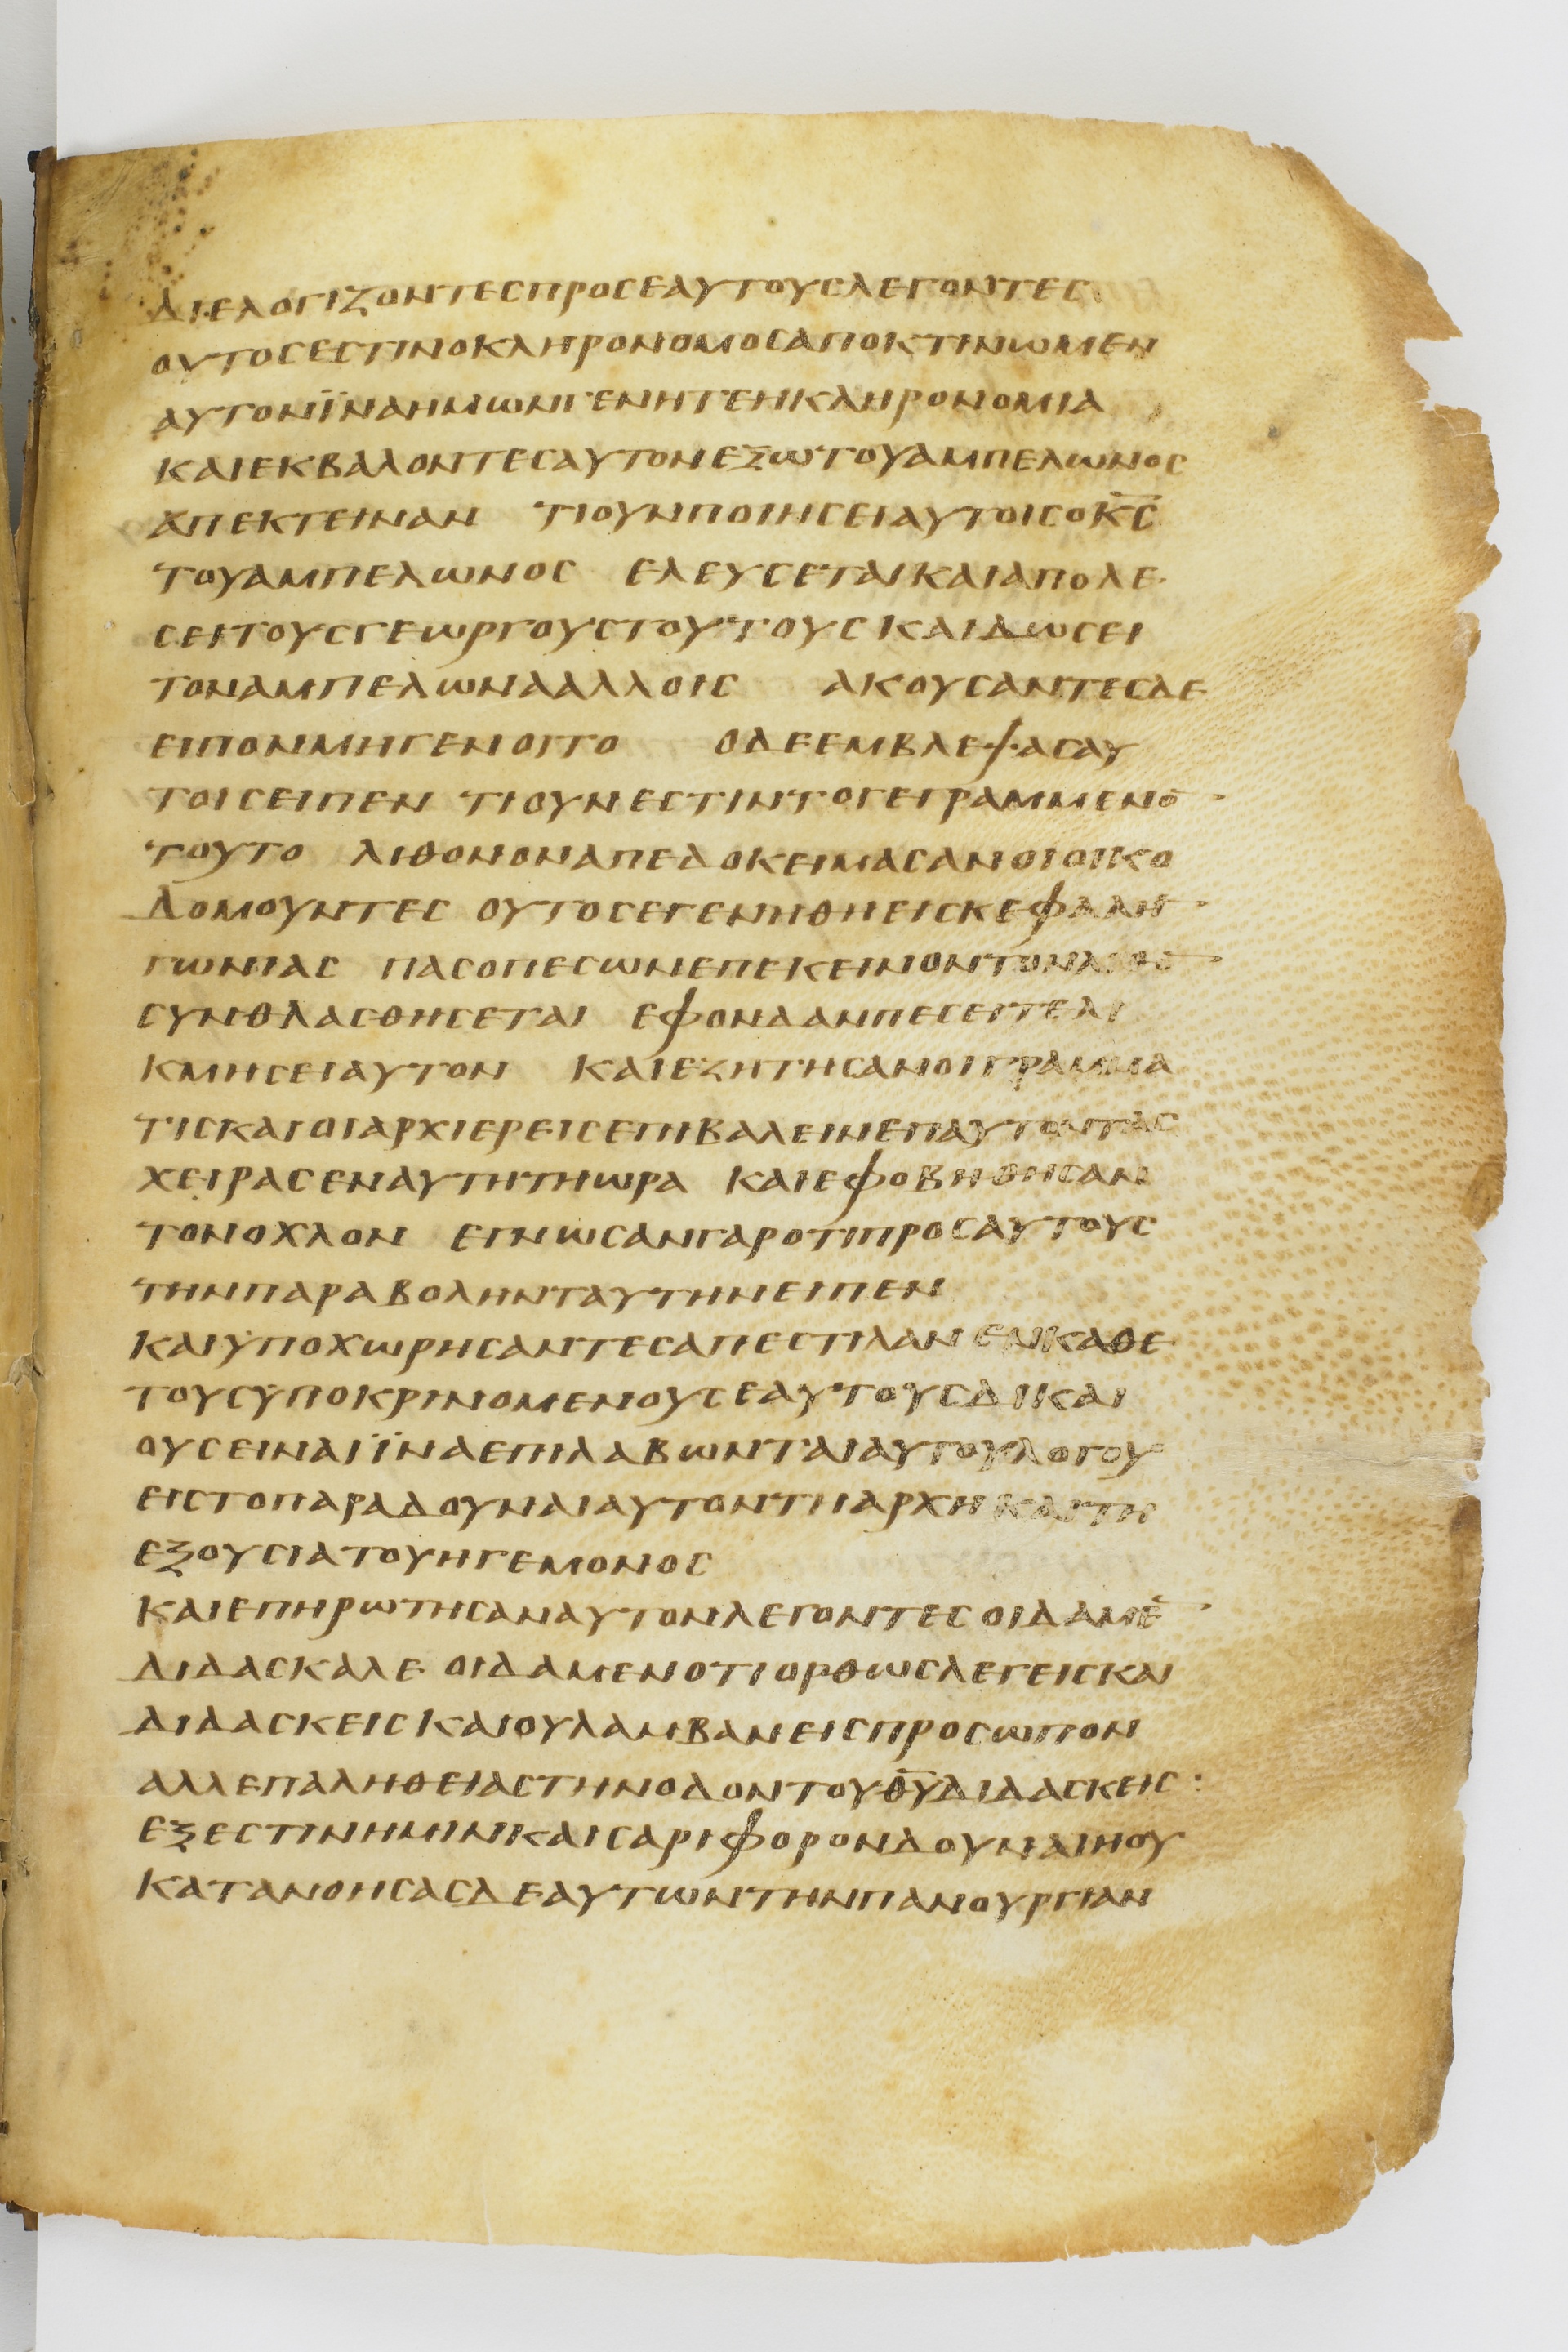 ΔΙΕΛΟΓΙΖΟΝΤΕСΠΡΟСΕΑΥΤΟΥСΛΕΓΟΝΤΕС
ΟΥΤΟСΕСΤΙΝΟΚΛΗΡΟΝΟΜΟСΑΠΟΚΤΙΝωΜΕΝ
ΑΥΤΟΝΪΝΑΗΜωΝΓΕΝΗΤΕΗΚΛΗΡΟΝΟΜΙΑ
ΚΑΙΕΚΒΑΛΟΝΤΕСΑΥΤΟΝΕΞωΤΟΥΑΜΠΕΛωΝΟС
ΑΠΕΚΤΕΙΝΑΝ ΤΙΟΥΝΠΟΙΗСΕΙΑΥΤΟΙСΟΚ̅С̅
ΤΟΥΑΜΠΕΛωΝΟС ΕΛΕΥСΕΤΑΙΚΑΙΑΠΟΛΕ
СΕΙΤΟΥСΓΕωΡΓΟΥСΤΟΥΤΟΥСΚΑΙΔωСΕΙ
ΤΟΝΑΜΠΕΛωΝΑΑΛΛΟΙС ΑΚΟΥСΑΝΤΕСΔΕ
ΕΙΠΟΝΜΗΓΕΝΟΙΤΟ ΟΔΕΕΜΒΛΕΨΑСΑΥ
ΤΟΙСΕΙΠΕΝ ΤΙΟΥΝΕСΤΙΝΤΟΓΕΓΡΑΜΜΕΝΟ̅
ΤΟΥΤΟ ΛΙΘΟΝΟΝΑΠΕΔΟΚΕΙΜΑСΑΝΟΙΟΙΚΟ
ΔΟΜΟΥΝΤΕС ΟΥΤΟСΕΓΕΝΗΘΗΕΙСΚΕΦΑΛΗ̅
ΓωΝΙΑС ΠΑСΟΠΕСωΝΕΠΕΚΕΙΝΟΝΤΟΝΛΙΘΟ̅
СΥΝΘΛΑСΘΗСΕΤΑΙ ΕΦΟΝΔΑΝΠΕСΕΙΤΕΛΙ
ΚΜΗСΕΙΑΥΤΟΝ ΚΑΙΕΖΗΤΗСΑΝΟΙΓΡΑΜΜΑ
ΤΙСΚΑΙΟΙΑΡΧΙΕΡΕΙСΕΠΙΒΑΛΕΙΝΕΠΑΥΤΟΝΤΑС
ΧΕΙΡΑСΕΝΑΥΤΗΤΗωΡΑ ΚΑΙΕΦΟΒΗΘΗСΑΝ
ΤΟΝΟΧΛΟΝ ΕΓΝωСΑΝΓΑΡΟΤΙΠΡΟСΑΥΤΟΥС
ΤΗΝΠΑΡΑΒΟΛΗΝΤΑΥΤΗΝΕΙΠΕΝ
ΚΑΙΫΠΟΧωΡΗСΑΝΤΕСΑΠΕСΤΙΛΑΝΕΝΚΑΘΕ
ΤΟΥСΫΠΟΚΡΙΝΟΜΕΝΟΥСΕΑΥΤΟΥСΔΙΚΑΙ
ΟΥСΕΙΝΑΙΪΝΑΕΠΙΛΑΒωΝΤΑΙΑΥΤΟΥΛΟΓΟΥ
ΕΙСΤΟΠΑΡΑΔΟΥΝΑΙΑΥΤΟΝΤΗΑΡΧΗΚΑΙΤΗ
ΕΞΟΥСΙΑΤΟΥΗΓΕΜΟΝΟС
ΚΑΙΕΠΗΡωΤΗСΑΝΑΥΤΟΝΛΕΓΟΝΤΕС ΟΙΔΑΜΕ̅
ΔΙΔΑСΚΑΛΕ ΟΙΔΑΜΕΝΟΤΙΟΡΘωСΛΕΓΕΙСΚΑΙ
ΔΙΔΑСΚΕΙСΚΑΙΟΥΛΑΜΒΑΝΕΙСΠΡΟСωΠΟΝ
ΑΛΛΕΠΑΛΗΘΕΙΑСΤΗΝΟΔΟΝΤΟΥΘ̅Υ̅ΔΙΔΑСΚΕΙС:
ΕΞΕСΤΙΝΗΜΙΝΚΑΙСΑΡΙΦΟΡΟΝΔΟΥΝΑΙΗΟΥ
ΚΑΤΑΝΟΗСΑСΔΕΑΥΤωΝΤΗΝΠΑΝΟΥΡΓΙΑΝ